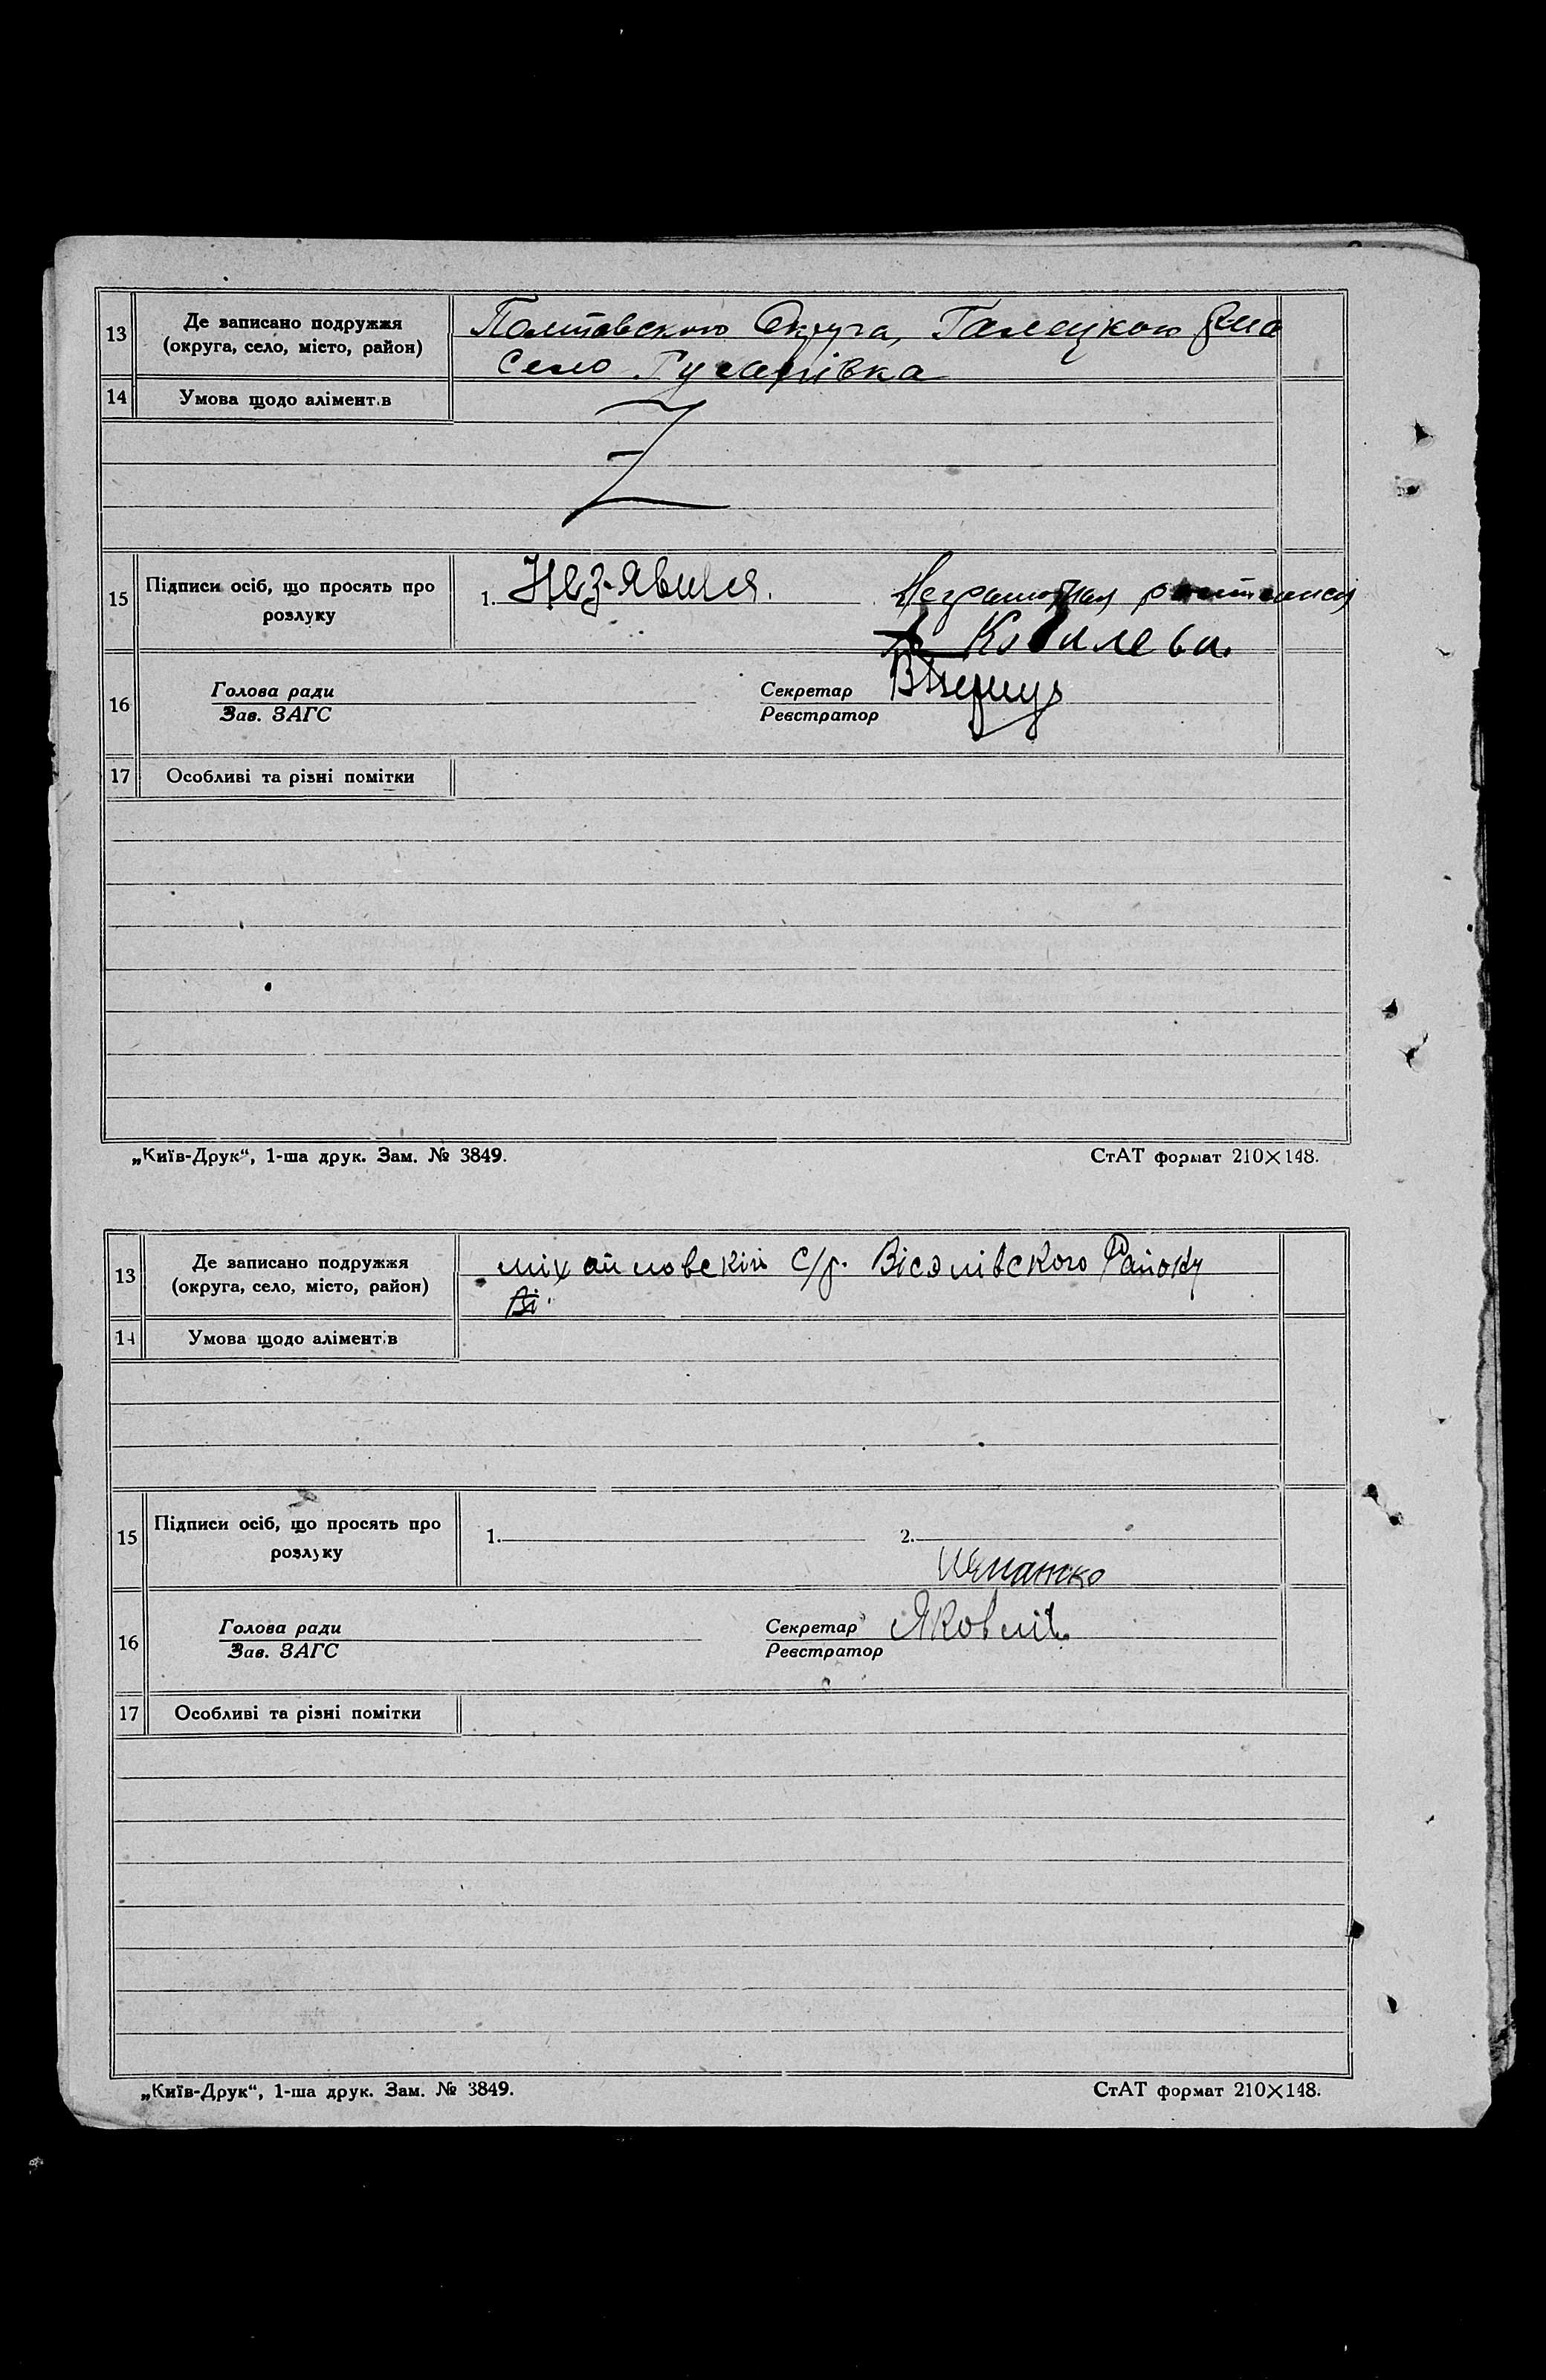 13 Де записано подружжя (округа, село, місто, район) Полтавского Округа,
село
14 Умова щодо аліментів
Z
15 Підписи осіб, що просять про розлуку 1. Неграмотная
Ковалева.
16 Голова ради Секретар
Зав. ЗАГС Реєстратор
17 Особливі та різні помітки
„Київ-Друк“, 1-ша друк. Зам. № 3849. СтАТ формат 210×148.
13 Де записано подружжя (округа, село, місто, район) С/р. Району
Ві
14 Умова щодо аліментів
15 Підписи осіб, що просять про розлуку 1. 2.
16 Голова ради Секретар Яковлів
Зав. ЗАГС Реєстратор
17 Особливі та різні помітки
„Київ-Друк“, 1-ша друк. Зам. № 3849. СтАТ формат 210×148.